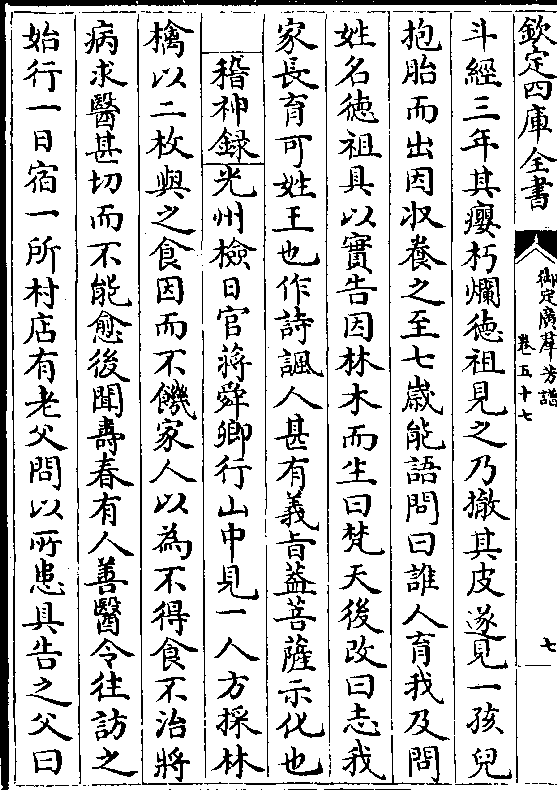 欽定四庫全書
御定廣羣芳譜
卷五十七
七
斗經三年其癭朽爛徳祖見之乃撤其皮遂見一孩兒
抱胎而出因收養之至七歲能語問曰誰人育我及問
姓名徳祖具以實告因林木而生曰梵天後改曰志我
家長育可姓王也作詩諷人甚有義旨葢菩薩示化也
稽神録光州檢日官蔣舜卿行山中見一人方採林
檎以二枚與之食因而不饑家人以為不得食不治將
病求醫甚切而不能愈後聞壽春有人善醫令往訪之
始行一日宿一所村店有老父問以所患具告之父曰